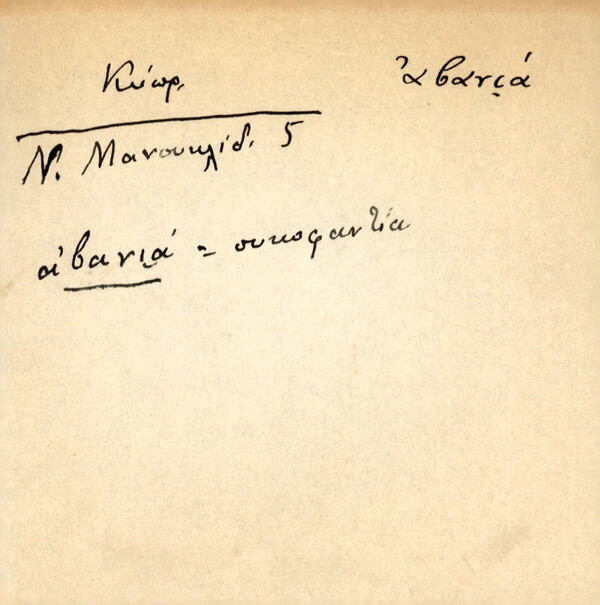 Κύωρ. ἀβανι̮ά
Ν. Μανουηλίδ. 5
ἀβανι̮ά = συκοφαντία